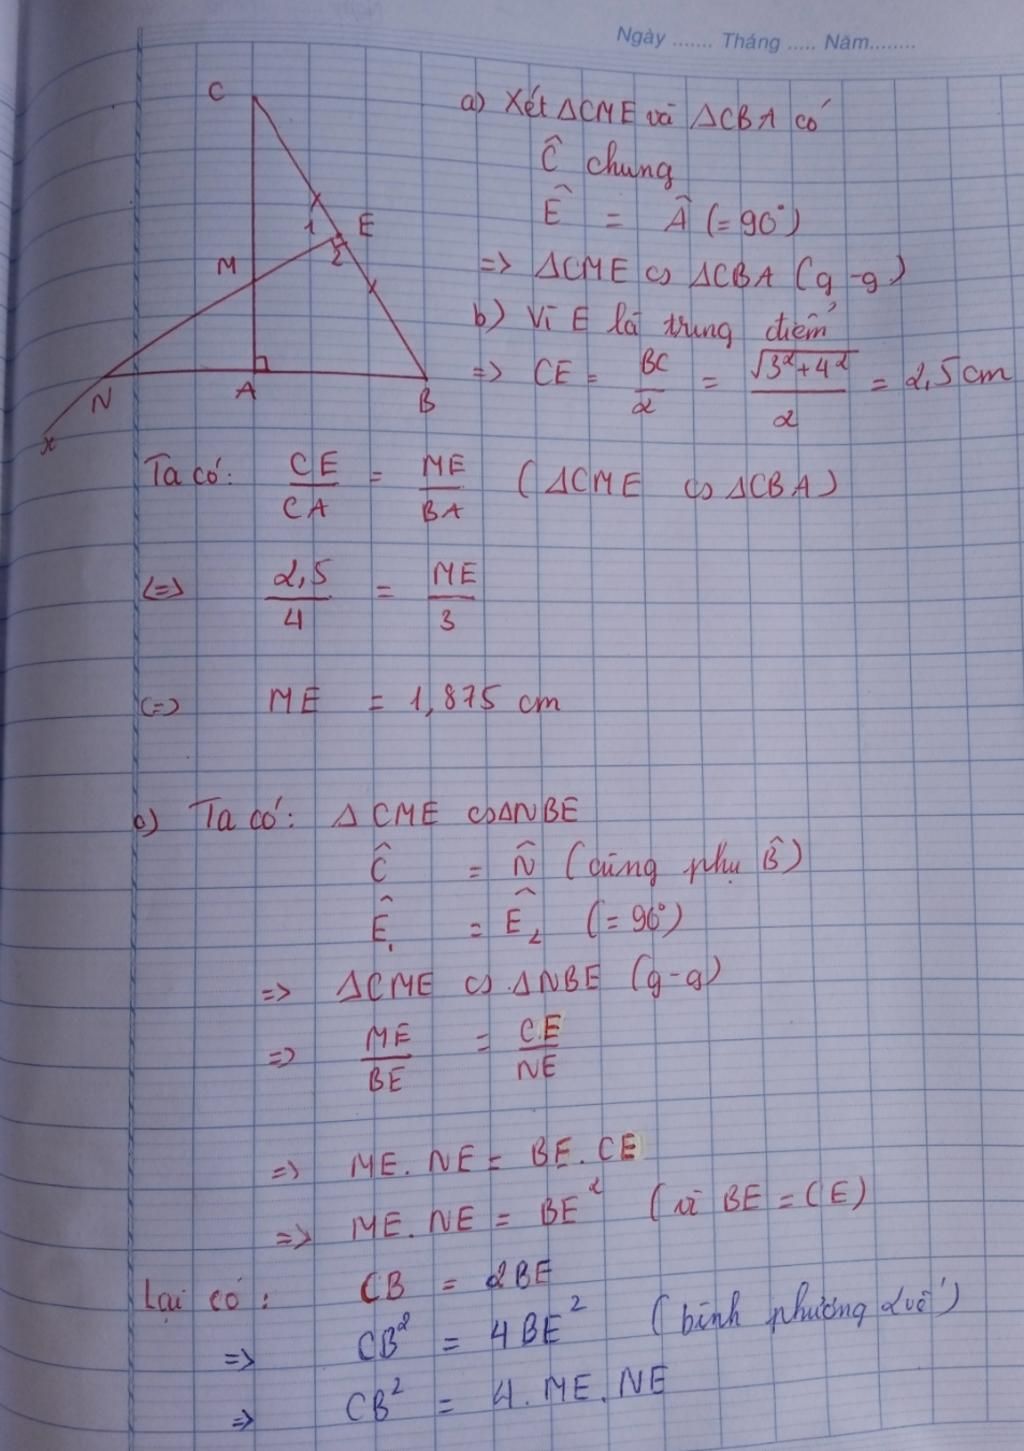 Ngày ....... Tháng ..... Năm........
C
1
E
2
M
N
A
B
x
a) Xét ΔCME và ΔCBA có
Ĉ chung
Ê = Â (=90°)
=> ΔCME ∽ ΔCBA (g-g)
b) Vì E là trung điểm
=> CE = BC/2 = √(3²+4²)/2 = 2,5cm
Ta có: CE/CA = ME/BA (ΔCME ∽ ΔCBA)
(=) 2,5/4 = ME/3
(=) ME = 1,875 cm
c) Ta có: ΔCME ∽ ΔNBE
Ĉ = N̂ (cùng phụ B̂)
Ê₁ = Ê₂ (=90°)
=> ΔCME ∽ ΔNBE (g-g)
=> ME/BE = CE/NE
=> ME. NE = BE. CE
=> ME. NE = BE² (vì BE = CE)
Lại có: CB = 2BE
=> CB² = 4BE² (bình phương 2 vế)
=> CB² = 4. ME. NE